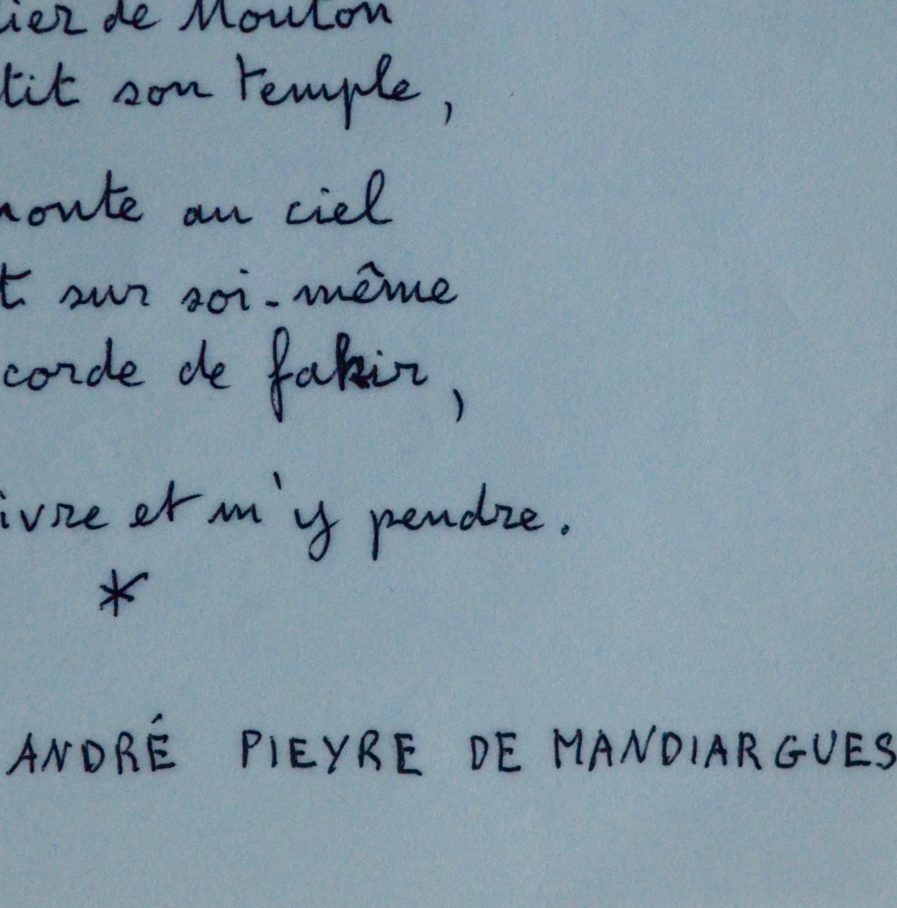 ier de Mouton
tit son temple,
monte au ciel
t sur soi-même
corde de fakir,
ivre et m'y pendre.
*
ANDRÉ PIEYRE DE MANDIARGUES